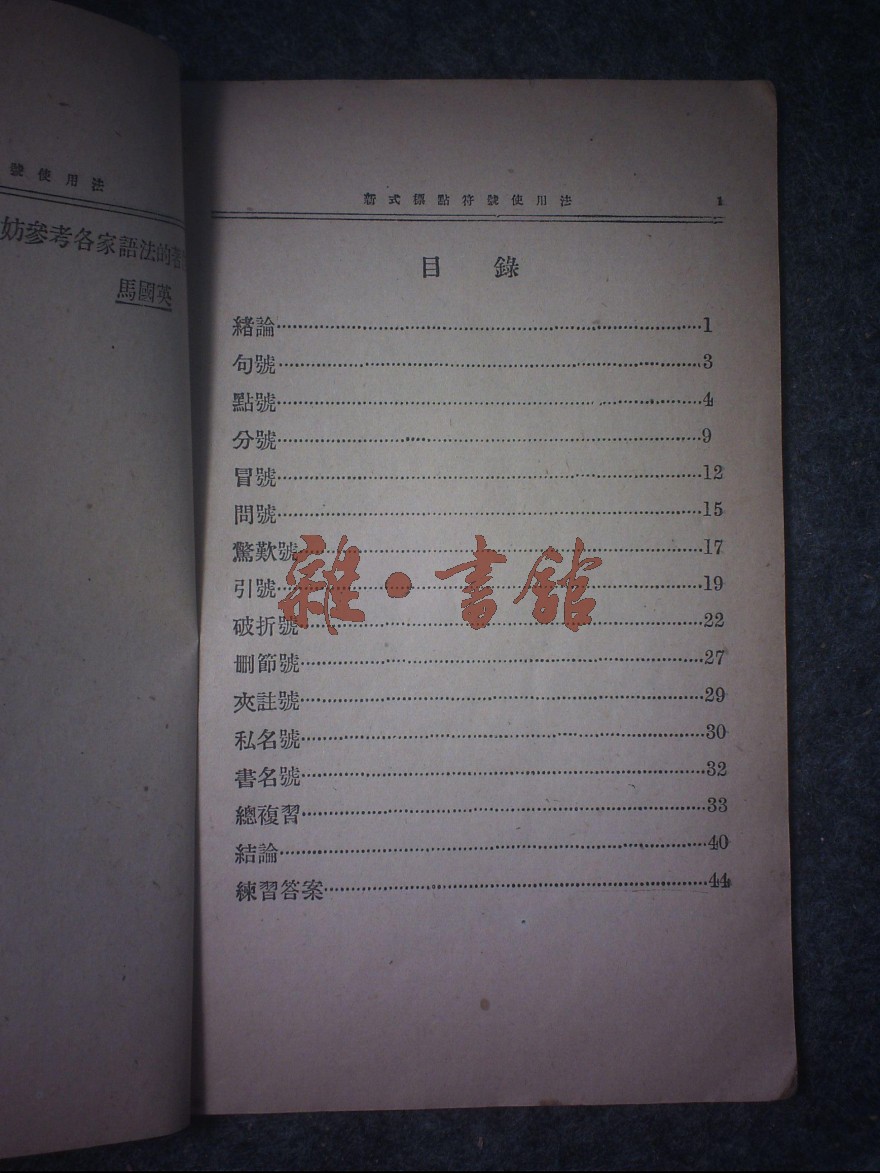 號使用法
妨參考各家語法的著
馬國英
新式標點符號使用法 1
目錄
緒論……1
句號……3
點號……4
分號……9
冒號……12
問號……15
驚歎號……17
引號……19
破折號……22
刪節號……27
夾註號……29
私名號……30
書名號……32
總複習……33
結論……40
練習答案……44
雜·書館